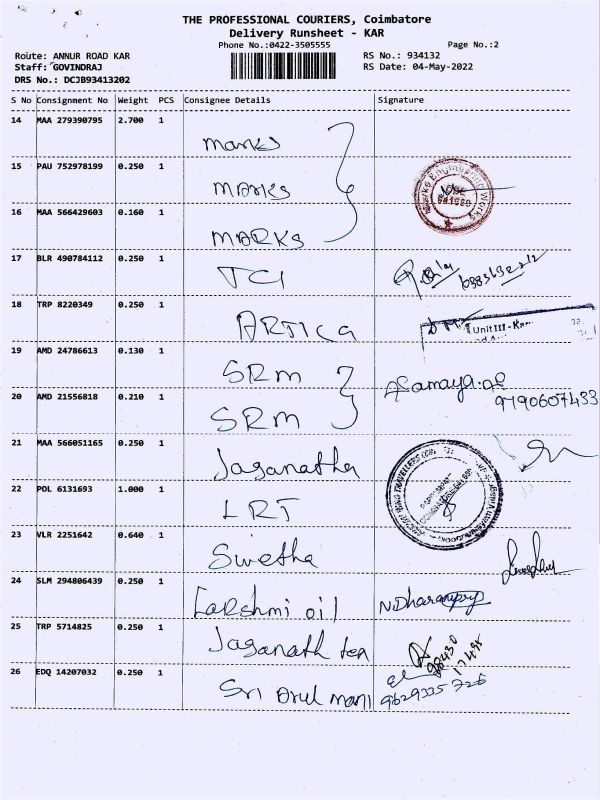 THE PROFESSIONAL COURIERS, Coimbatore
Delivery Runsheet - KAR
Phone No.:0422-3505555
Page No.:2
Route: ANNUR ROAD KAR
RS No.: 934132
Staff: GOVINDRAJ
RS Date: 04-May-2022
DRS No.: DCJB93413202
S No Consignment No Weight PCS Consignee Details Signature
14 MAA 279390795 2.700 1
marks
15 PAU 752978199 0.250 1
MARKS
16 MAA 566429603 0.160 1
MARKS
17 BLR 490784112 0.250 1
TCI
18 TRP 8220349 0.250 1
ARTICA
Unit III - Kar
19 AMD 24786613 0.130 1
SRM
20 AMD 21556818 0.210 1
SRM
9790607433
21 MAA 566051165 0.250 1
Jaganatha
22 POL 6131693 1.000 1
LRT
23 VLR 2251642 0.640 1
Swetha
24 SLM 294806439 0.250 1
Lakshmi oil
25 TRP 5714825 0.250 1
Jaganath tex
26 EDQ 14207032 0.250 1
Sri Arul mani